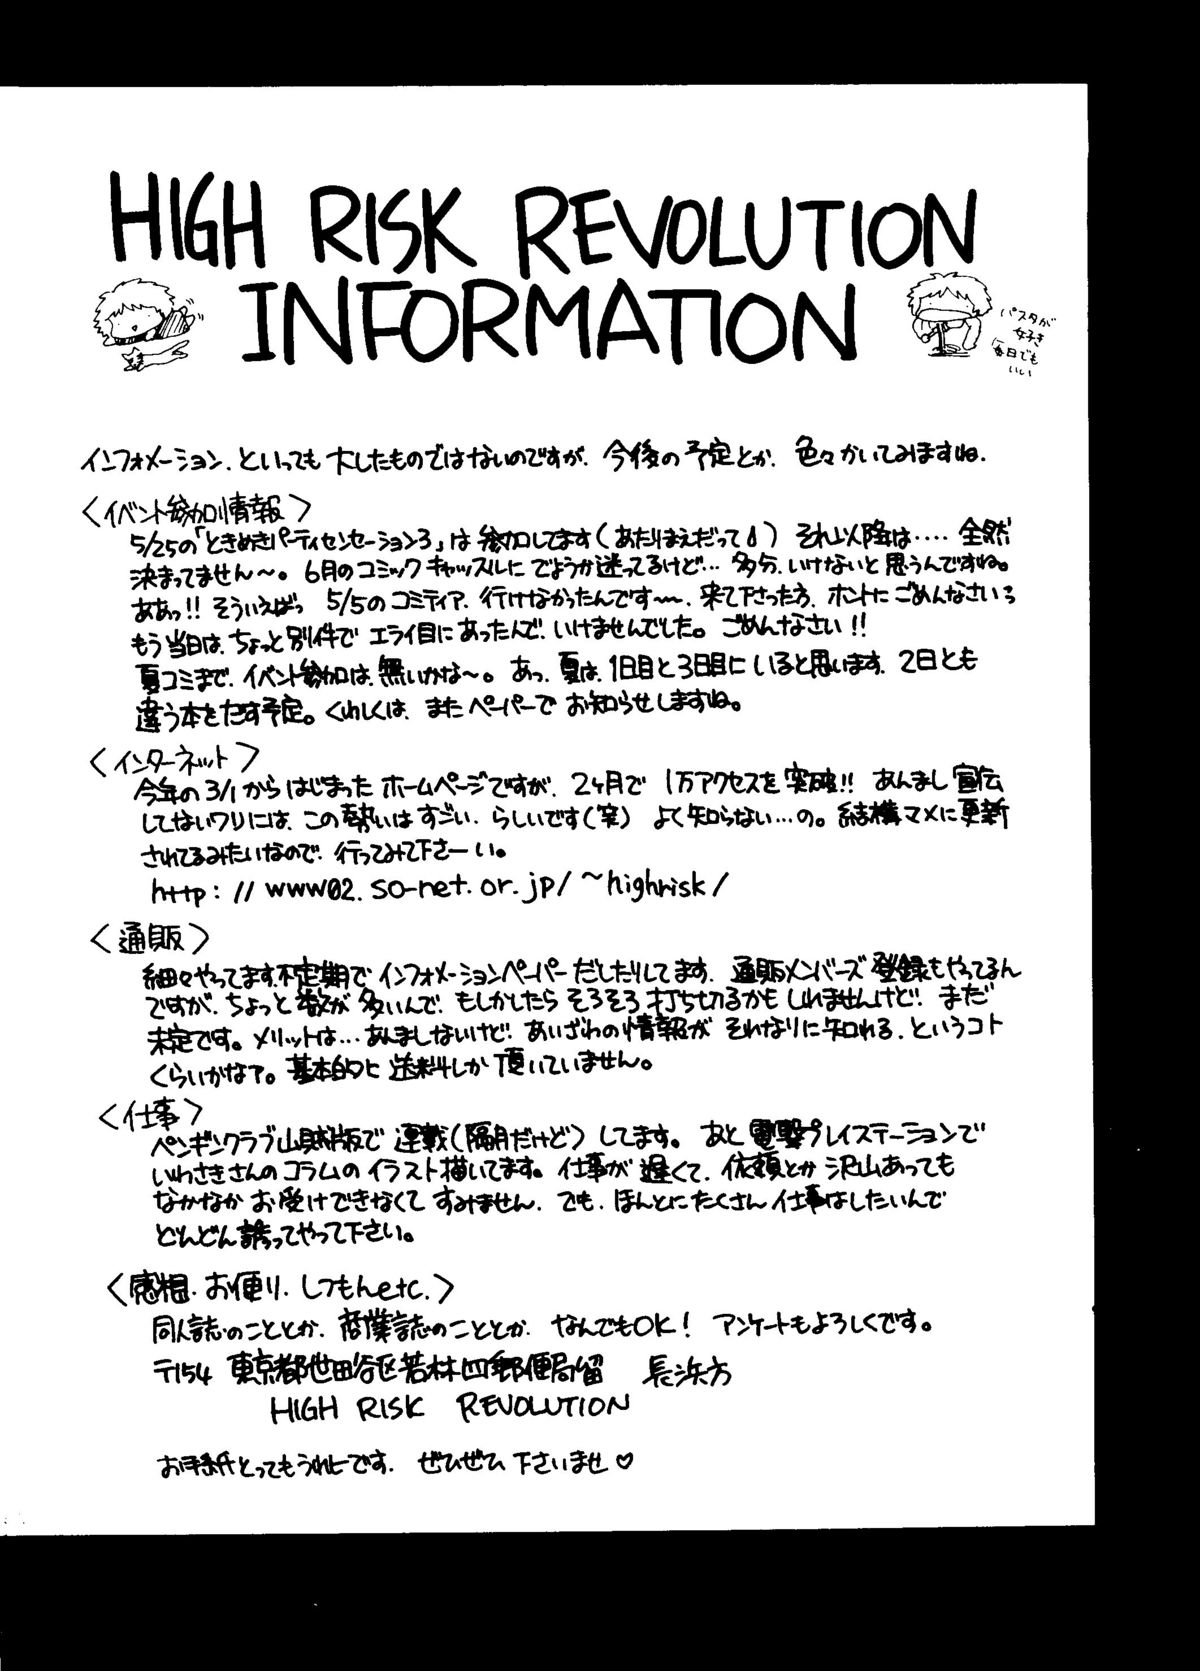 HIGH RISK REVOLUTION
INFORMATION
パスタが
好き
毎日でも
いい
インフォメーション、といっても大したものではないのですが、今後の予定とか、色々かいてみますね。
〈イベント参加情報〉
5/25の「ときめきパーティセンセーション3」は参加してます(あたりまえだって) それ以降は…‥全然
決まってません〜。6月のコミックキャッスルにでようか迷ってるけど…多分、いけないと思うんですね。
ああっ!!そういえばっ 5/5のコミティア、行けなかったんです〜、来て下さった方、ホントにごめんなさい
もう当日は、ちょっと別件でエライ目にあったんで、いけませんでした。ごめんなさい!!
夏コミまで、イベント参加は、無いかな〜。あっ、夏は、1日目と3日目にいると思います、2日とも
違う本をだす予定。くわしくは、またペーパーでお知らせしますね。
〈インターネット〉
今年の3/1からはじまったホームページですが、2ヶ月で1万アクセスを突破!! あんまし宣伝
してないワリには、この勢いはすごい、らしいです(笑) よく知らない…の。結構マメに更新
されてるみたいなので、行ってみて下さーい。
http://www02.so-net.or.jp/~highrisk/
〈通販〉
細々やってます、不定期でインフォメーションペーパーだしたりしてます、通販メンバーズ登録もやってるん
ですが、ちょっと数が多いんで、もしかしたらそろそろ打ち切るかもしれませんけど、まだ
未定です。メリットは…あんましないけど、あいざわの情報がそれなりに知れる、というコト
くらいかなア。基本的に送料しか頂いていません。
〈仕事〉
ペンギンクラブ山賊版で連載(隔月だけど)してます。あと電撃プレイステーションで
いわさきさんのコラムのイラスト描いてます。仕事が遅くて、依頼とか沢山あっても
なかなかお受けできなくてすみません、でも、ほんとにたくさん仕事はしたいんで
どんどん誘ってやって下さい。
〈感想、お便り、しつもんetc.〉
同人誌のこととか、商業誌のこととか、なんでもOK! アンケートもよろしくです。
〒154 東京都世田谷区若林四郵便局留 長浜方
HIGH RISK REVOLUTION
お手紙とってもうれしーです、ぜひぜひ下さいませ♡